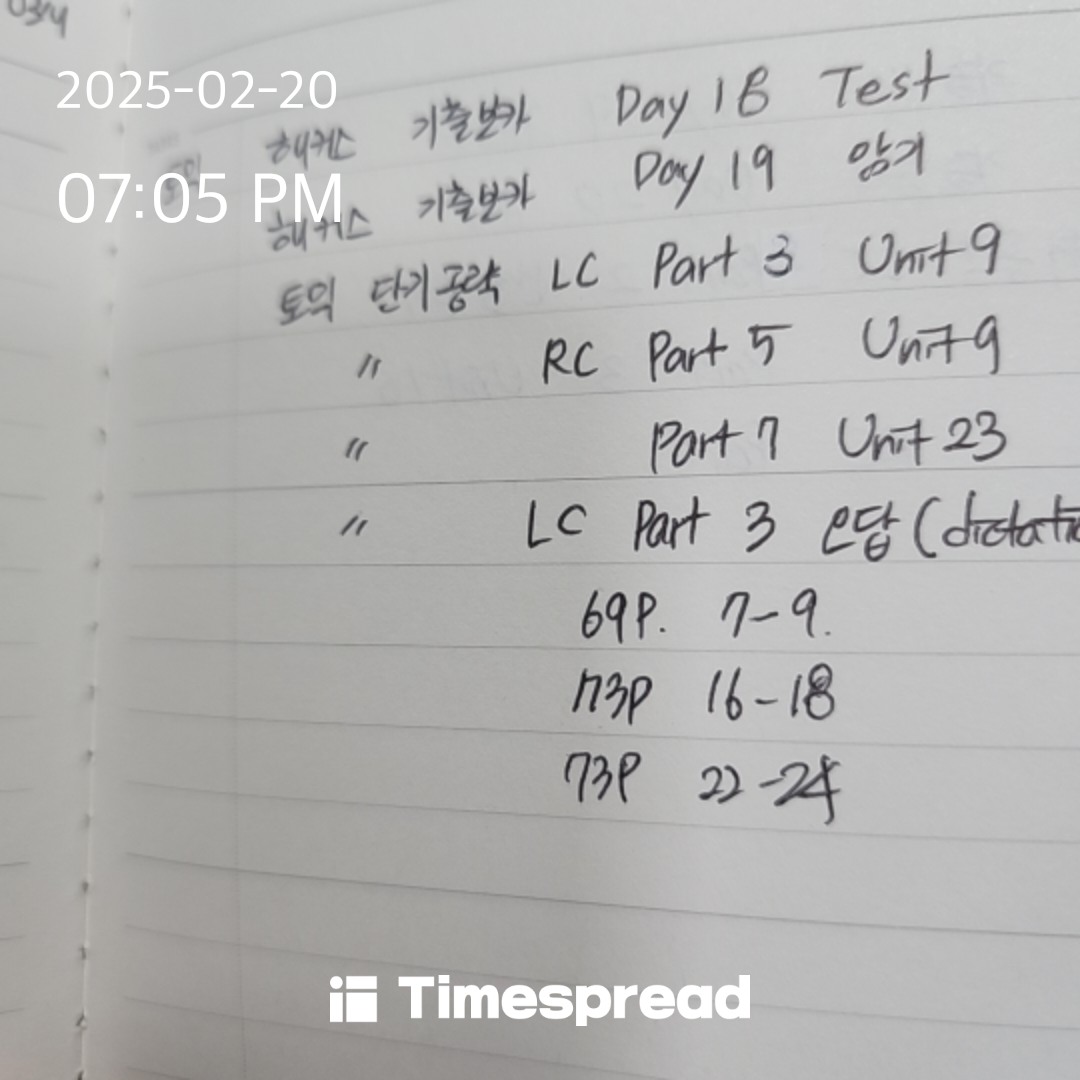 2025-02-20
07:05 PM
해커스 기출보카 Day 18 Test
해커스 기출보카 Day 19 암기
토익 단기공략 LC Part 3 Unit 9
〃 RC Part 5 Unit 9
〃 Part 7 Unit 23
〃 LC Part 3 오답 (dictati
69P. 7-9.
73P 16-18
73P 22-24
Timespread